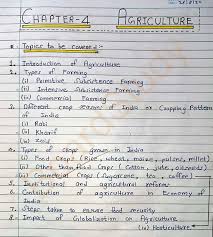 CHAPTER-4 AGRICULTURE
Topics to be covered:-
1. Introduction of Agriculture
2. Types of Farming
(i) Primitive Subsistence Farming
(ii) Intensive Subsistence Farming
(iii) Commercial Farming
3. Different crop seasons of India or Cropping Pattern
of India
(i) Rabi
(ii) Kharif
(iii) Zaid
4. Types of crops grown in India
(i) Food Crops (Rice, wheat, maize, pulses, millet)
(ii) Other than food Crops (Cotton, jute, oilseeds)
(iii) Commercial Crops (Sugarcane, tea, coffee)
5. Institutional and agricultural reforms
6. Contribution of agriculture in Economy of
India
7. Steps taken to ensure food security
8. Impact of Globalization on Agriculture
(iv) Horticulture